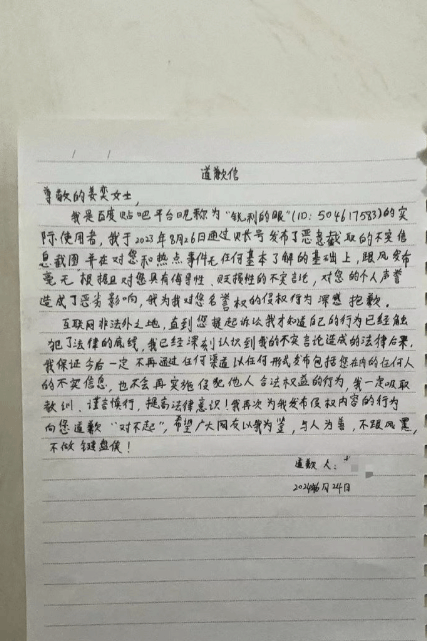 道歉信
尊敬的姜奕女士,
我是百度贴吧平台昵称为“锐利的眼”(ID:504617583)的实
际使用者,我于2023年8月26日通过账号发布了恶意截取的不实信
息截图并在对您和热点事件无任何基本了解的基础上,跟风发布
毫无根据且对您具有侮辱性、贬损性的不实言论,对您的个人声誉
造成了恶劣影响,我为我对您名誉权的侵权行为深感抱歉。
互联网非法外之地,直到您提起诉讼我才知道自己的行为已经触
犯了法律的底线,我已经深刻认识到我的不实言论造成的法律后果,
我保证今后一定不再通过任何渠道以任何形式发布包括您在内的任何人
的不实信息,也不会再实施侵犯他人合法权益的行为,我一定吸取
教训、谨言慎行,提高法律意识!我再次为我发布侵权内容的行为
向您道歉“对不起”,希望广大网友以我为鉴,与人为善,不跟风黑,
不做键盘侠!
道歉人:
月24日